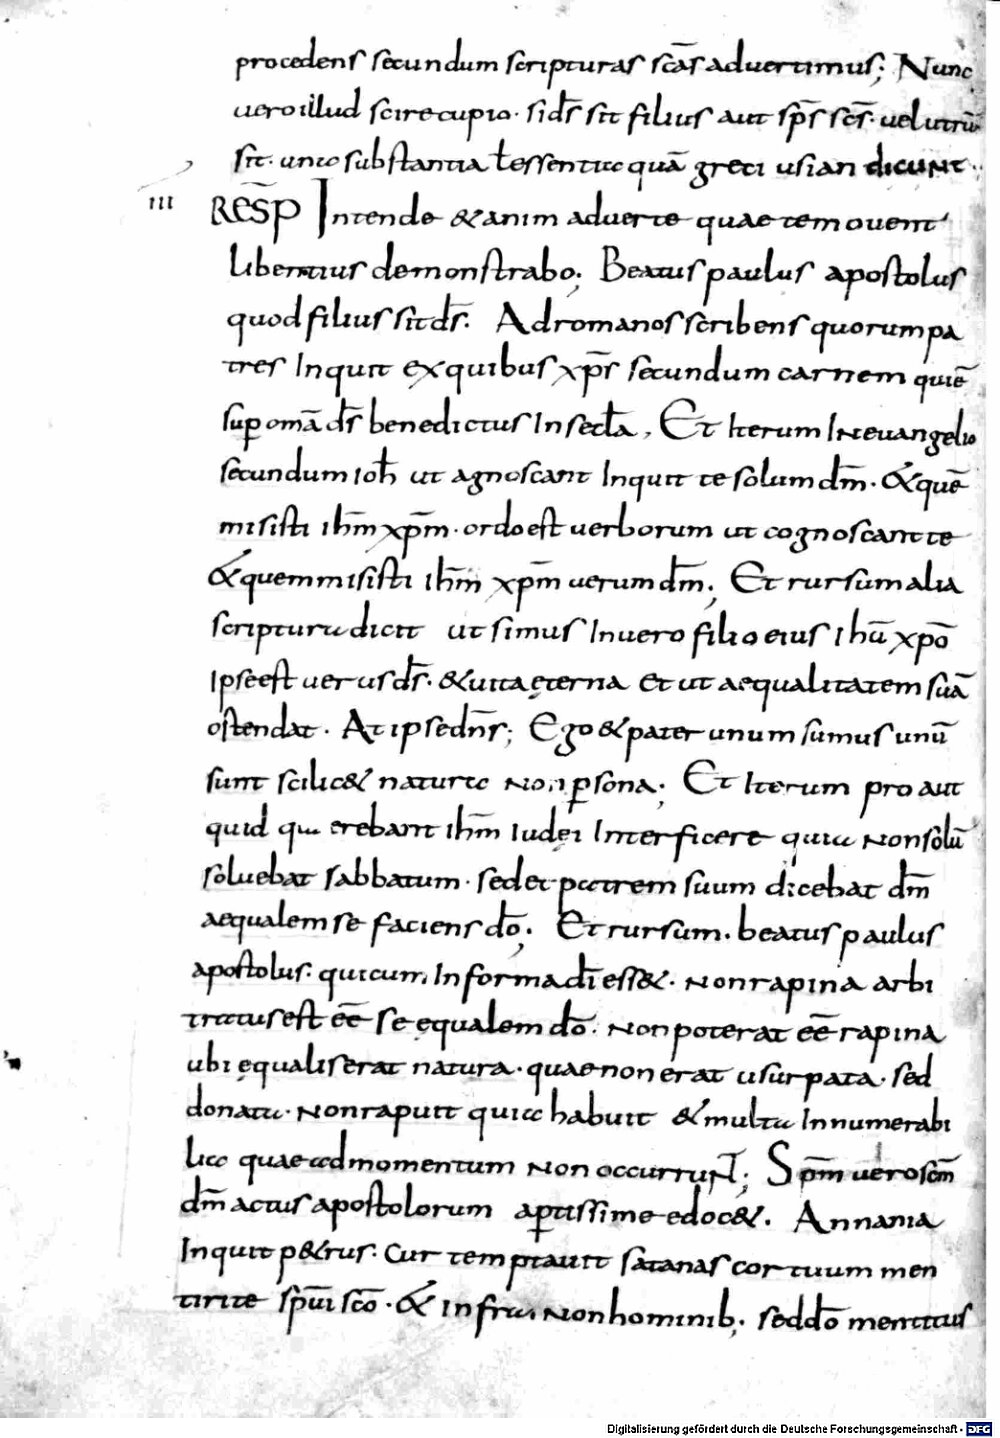 procedens secundum scripturas sc̄as advertimus; Nunc
uero illud scire cupio· si d̄s sit filius aut sp̄s sc̄s· uel utrūq
sit· unius substantiae ƚ essentiae quā greci usian dicunt·
III RESP̄ Intende & animadverte quae te moueant
libentius demonstrabo; Beatus paulus apostolus
quod filius sit d̄s. Ad romanos scribens quorum pa
tres Inquit ex quibus xp̄s secundum carnem qui ē
sup omā d̄s benedictus In secƚa, Et Iterum In euangelio
secundum ioh̄ ut agnoscant Inquit te solum dm̄· & quē
misisti ih̄m xp̄m· ordo est uerborum ut cognoscant te
& quem misisti ih̄m xp̄m uerum dm̄; Et rursum alia
scriptura dicit ut simus In uero filio eius ihū xp̄o
Ipse est uerus d̄s· & uita ęterna Et ut aequalitatem suā
ostendat· At ipse dn̄s; Ego & pater unum sumus unū
sunt scilic& natura non psona; Et Iterum pro aut
quid quaerebant ih̄m iudei Interficere quia non solū
soluebat sabbatum· sed et patrem suum dicebat dm̄
aequalem se faciens dō; Et rursum· beatus paulus
apostolus: qui cum In forma dī ess&· non rapina arbi
tratus est eē se ęqualem dō· non poterat eē rapina
ubi ęqualis erat natura· quae non erat usurpata· sed
donata· non raputt quia habuit & multa Innumerabi
lia quae ad momentum non occurrunt; Spm̄ uero scm̄
dm̄ actus apostolorum aptissime edoc&. Annania
Inquit p&rus: cur temptauit satanas cor tuum men
tirite spūi scō· & infra non hominib; sed dō mentitus
Digitalisierung gefördert durch die Deutsche Forschungsgemeinschaft - DFG